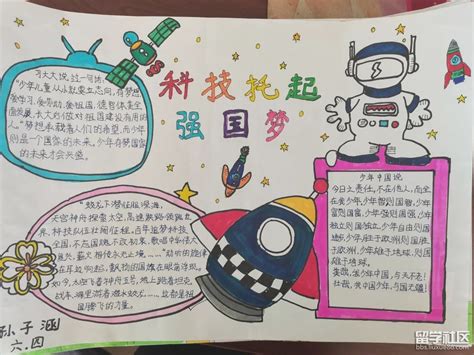 科技托起
强国梦
习大大说过一句话:
"少年儿童从小就要立志向,有梦想
爱学习,爱劳动,爱祖国,德智体美全
面发展,长大后做对祖国建设有用的
人。"梦想承载着人们的希望,而少年
则是一个国家的未来。少年有梦国家
的未来才会兴盛。
"蛟龙"下潜征服深海,
天宫神舟探索太空,高速铁路领跑
来,科技队伍壮阔向前,百年追梦科技
全国,不忘国魂不改初来,歌唱中华语大
在耳边响起,飘扬的国旗在眼角浮现,
国腾飞的力量。
少年中国说
今日之责任,不在他人,而全
在我少年,少年智则国智,少年
富则国富,少年强则国强,少年
独立则国独立,少年自由则国
自由,少年进步则国进步,少年
胜于欧洲,则国胜于欧洲,少年
雄于地球,则国雄于地球。
美哉,我少年中国,与天不老!
壮哉,我中国少年,与国无疆!
孙子涵
六.四
留学社区
bbs.liuxue86.com